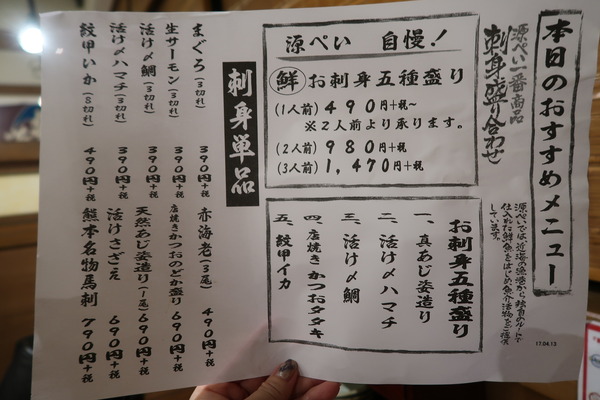 本日のおすすめメニュー
源ぺい一番商品
刺身盛り合わせ
源ぺいでは、近海の漁港から独自のルートで
仕入れた鮮魚をはじめ魚介活物をご提供
しています。
17.04.13
源ぺい 自慢!
鮮 お刺身五種盛り
(1人前) 490円+税~
※2人前より承ります。
(2人前) 980円+税
(3人前) 1,470円+税
お刺身五種盛り
一、真あじ姿造り
二、活け〆ハマチ
三、活け〆鯛
四、店焼きかつおタタキ
五、紋甲イカ
刺身単品
まぐろ(3切れ) 390円+税
生サーモン(3切れ) 390円+税
活け〆鯛(3切れ) 390円+税
活け〆ハマチ(3切れ) 390円+税
紋甲いか(8切れ) 490円+税
赤海老(3尾) 490円+税
店焼きかつおのどか盛り 690円+税
天然あじ姿造り(1尾) 690円+税
活けさざえ 690円+税
熊本名物馬刺 790円+税